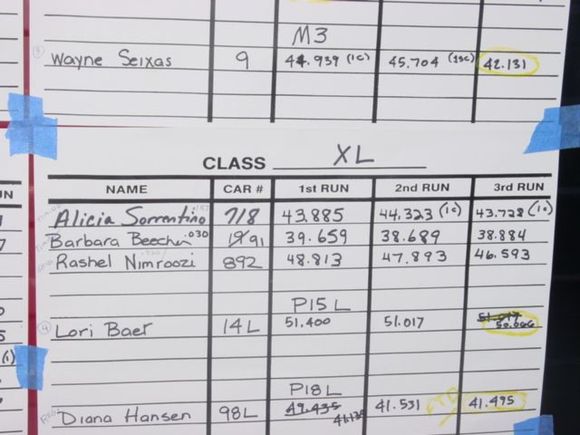 M3
Wayne Seixas 9 44.939 (1c) 45.704 (1sc) 42.131
CLASS XL
NAME CAR # 1st RUN 2nd RUN 3rd RUN
Alicia Sorrentino 718 43.885 44.323 (1c) 43.728 (1c)
Barbara Beecher .030 91 39.659 38.689 38.884
Rashel Nimroozi 892 48.813 47.893 46.593
P15 L
Lori Baer 14L 51.400 51.017 51.017
50.066
P18L
Diana Hansen 98L 49.435 41.531 41.495